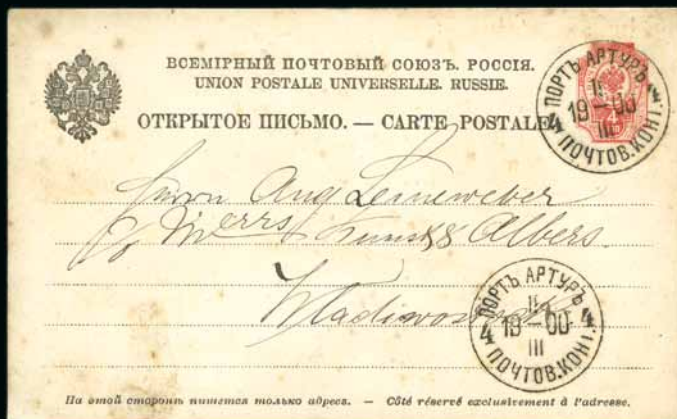 ВСЕМІРНЫЙ ПОЧТОВЫЙ СОЮЗЪ. РОССІЯ.
UNION POSTALE UNIVERSELLE. RUSSIE.
ОТКРЫТОЕ ПИСЬМО. — CARTE POSTALE.
ПОРТЪ АРТУРЪ
II
19—00
III
4 ПОЧТОВ. КОНТ. 4
4
Herrn Aug Leineweber
c/o Merrs Kunst & Albers.
Wladiwostok
ПОРТЪ АРТУРЪ
II
4 19—00 4
III
ПОЧТОВ. КОНТ.
На этой сторонѣ пишется только адресъ. — Côté réservé exclusivement à l'adresse.